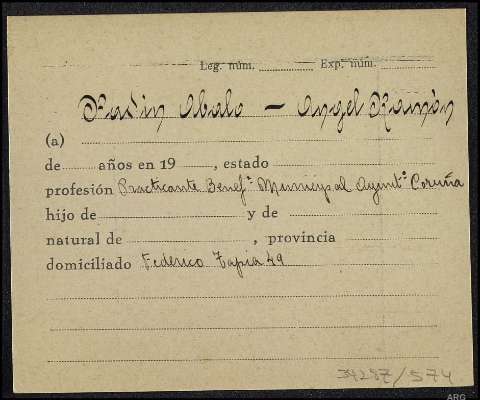 Leg. núm. Exp. núm.
Padin Abalo — Angel Ramón
(a)
de años en 19 , estado
profesión Practicante Benefª Municipal Ayuntº Coruña
hijo de y de
natural de , provincia
domiciliado Federico Tapia 49
34287/574
ARG